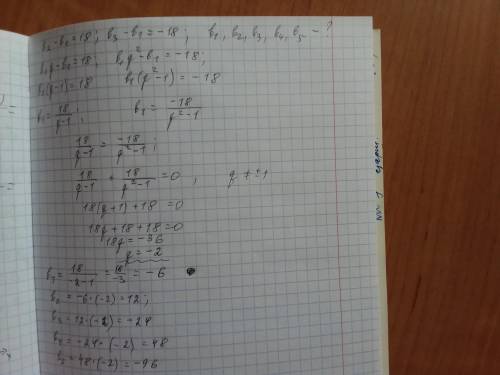 b₂-b₁=18; b₃-b₁=-18; b₁, b₂, b₃, b₄, b₅ - ?
b₁q-b₁=18; b₁q²-b₁=-18;
b₁(q-1)=18 b₁(q²-1)=-18
b₁=18/(q-1); b₁=-18/(q²-1)
18/(q-1)=-18/(q²-1);
18/(q-1)+18/(q²-1)=0, q≠±1
18(q+1)+18=0
18q+18+18=0
18q=-36
q=-2
b₁=18/(-2-1)=18/-3=-6
b₂=-6·(-2)=12;
b₃=12·(-2)=-24
b₄=-24·(-2)=48
b₅=48·(-2)=-96